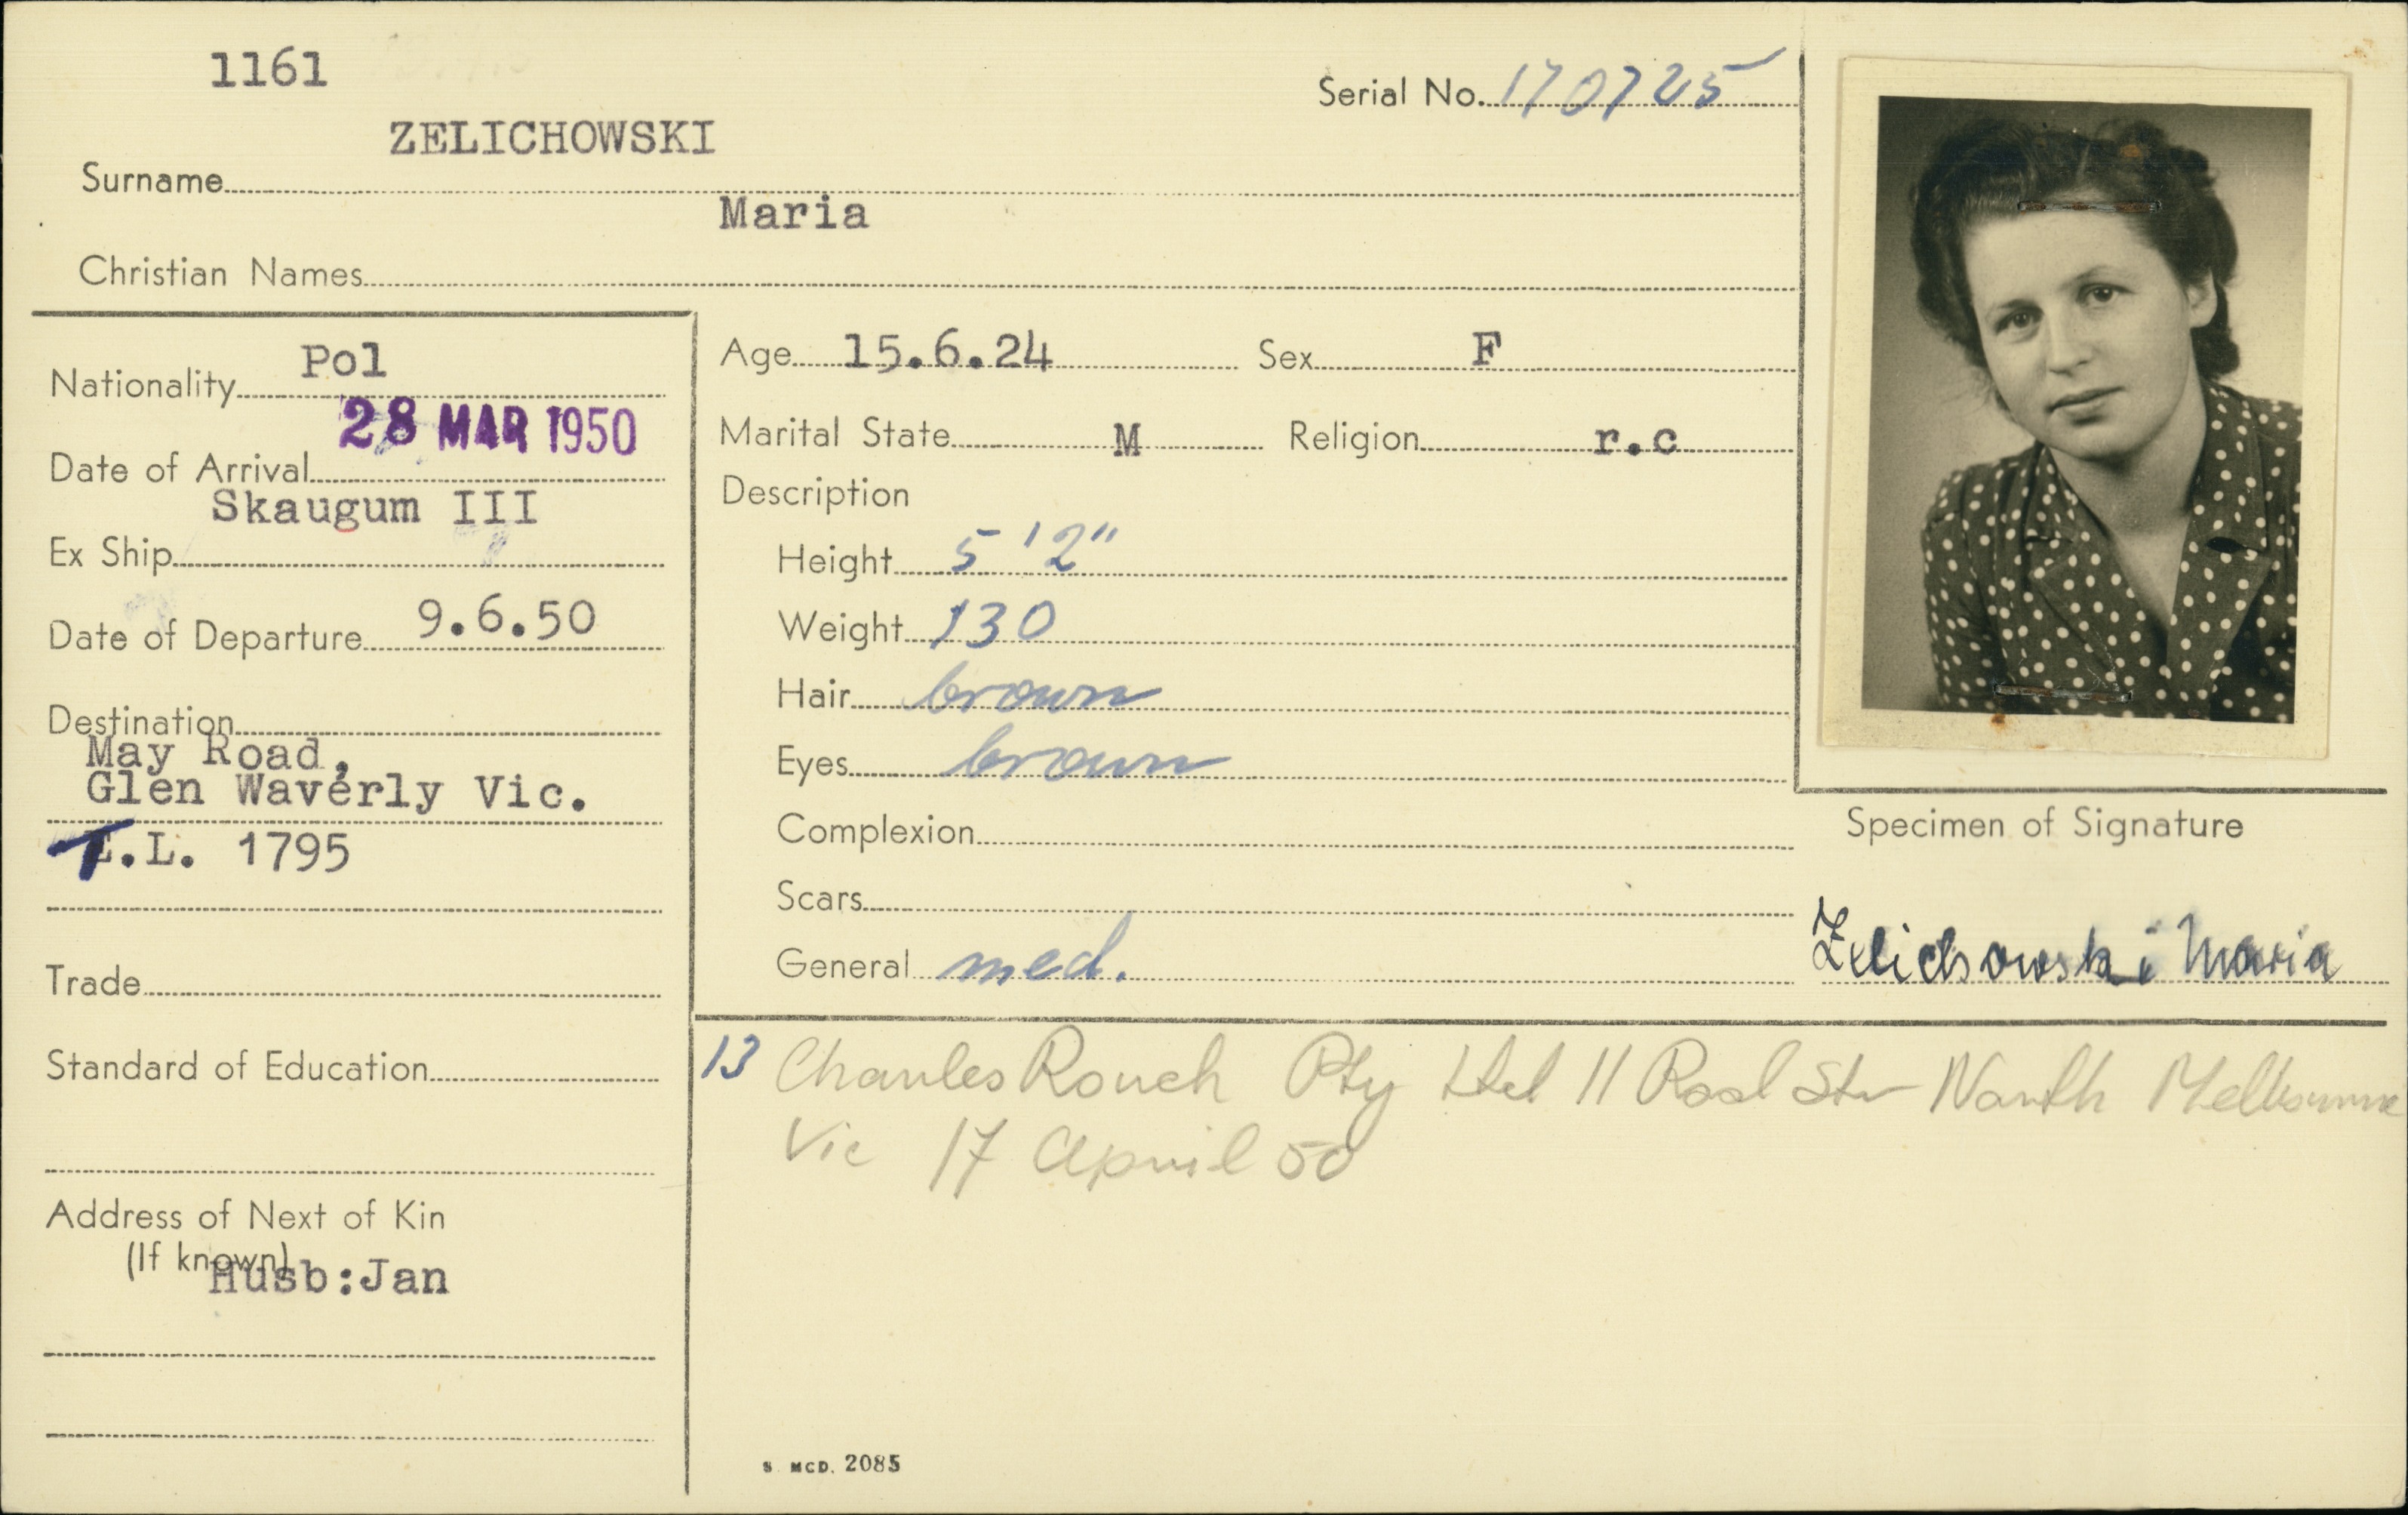 1161
Serial No. 170725
ZELICHOWSKI
Surname
Maria
Christian Names
Nationality Pol
Date of Arrival 28 MAR 1950
Ex Ship Skaugum III
Date of Departure 9.6.50
Destination
May Road,
Glen Waverly Vic.
T.L. 1795
Trade
Standard of Education
Address of Next of Kin
(If known)
Husb:Jan
Age 15.6.24 Sex F
Marital State M Religion r.c
Description
Height 5'2"
Weight 130
Hair brown
Eyes brown
Complexion
Scars
General med.
Specimen of Signature
Zelichowski Maria
13 Charles Rouch Pty Ltd 11 Str North Melbourne
Vic 17 April 50
S. MCD. 2085